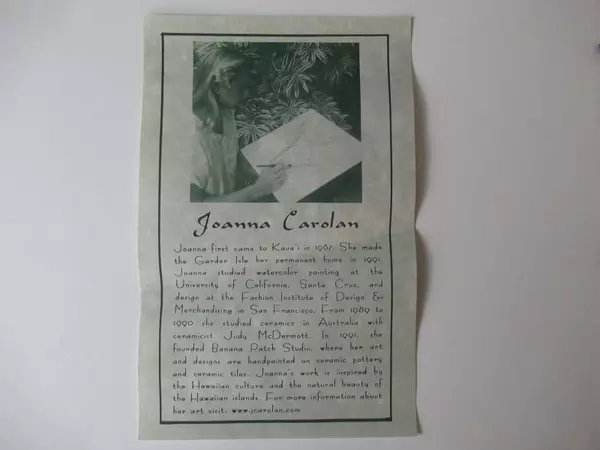 Joanna Carolan
Joanna first came to Kaua'i in 1967. She made
the Garden Isle her permanent home in 1991.
Joanna studied watercolor painting at the
University of California, Santa Cruz, and
design at the Fashion Institute of Design &
Merchandizing in San Francisco. From 1989 to
1990 she studied ceramics in Australia with
ceramicist Judy McDermott. In 1991, she
founded Banana Patch Studio, where her art
and designs are handpainted on ceramic pottery
and ceramic tiles. Joanna's work is inspired by
the Hawaiian culture and the natural beauty of
the Hawaiian islands. For more information about
her art visit: www.jcarolan.com